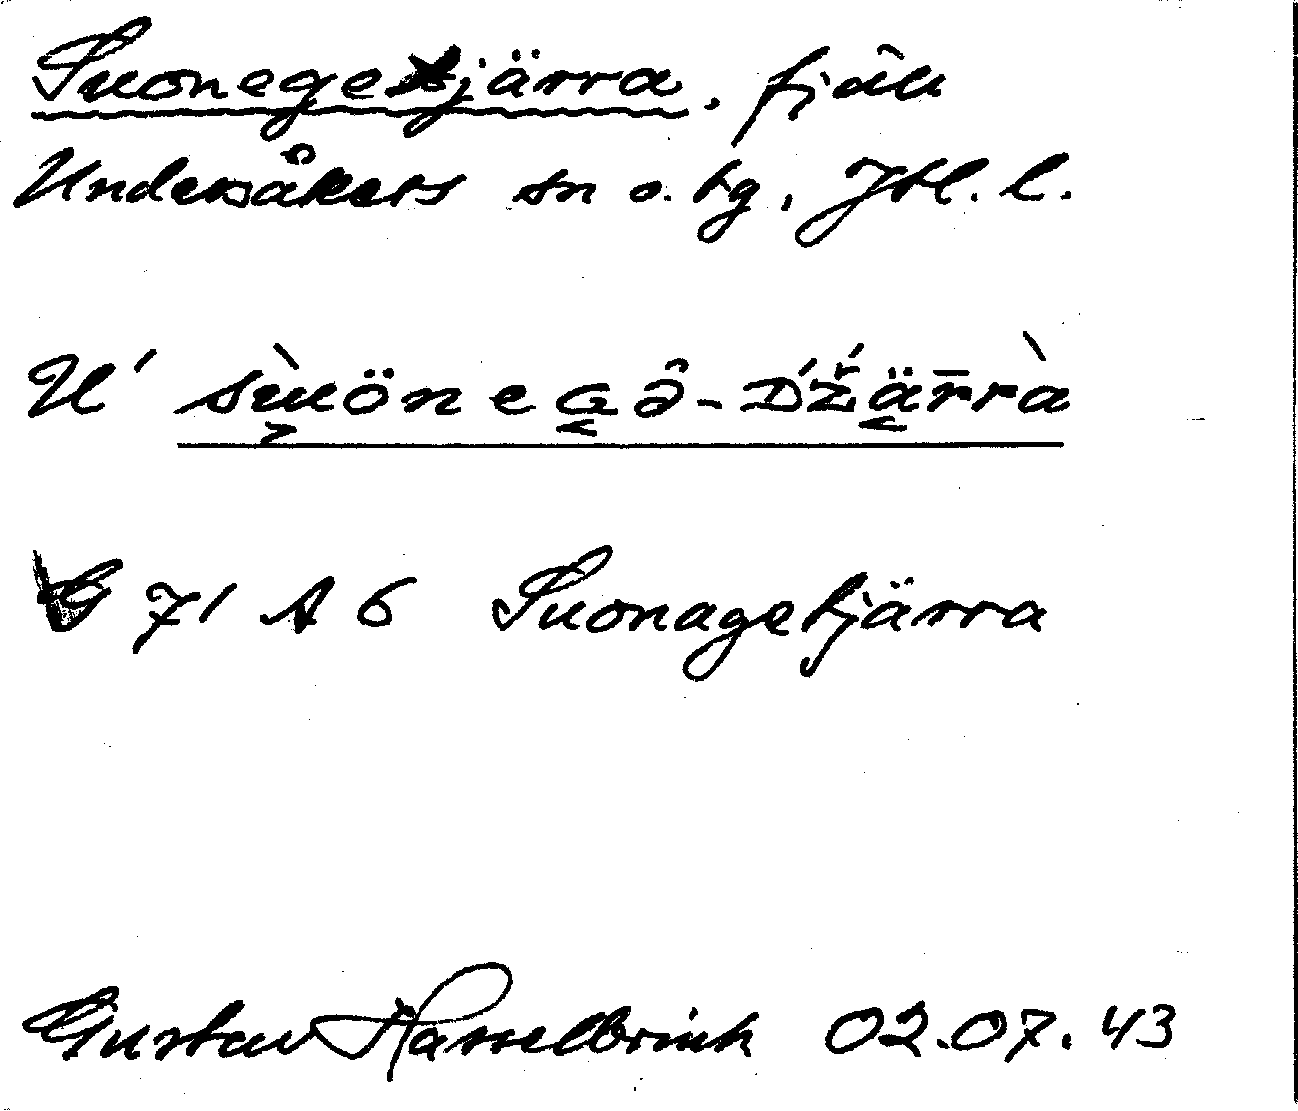 Suonegetjärra, fjäll
Undersåkers sn o. tg, Jtl. l.
U' sùönegə̂-D'ž́ärrà
G 71 A 6 Suonagetjärra
Gustav Hasselbrink 02.07.43